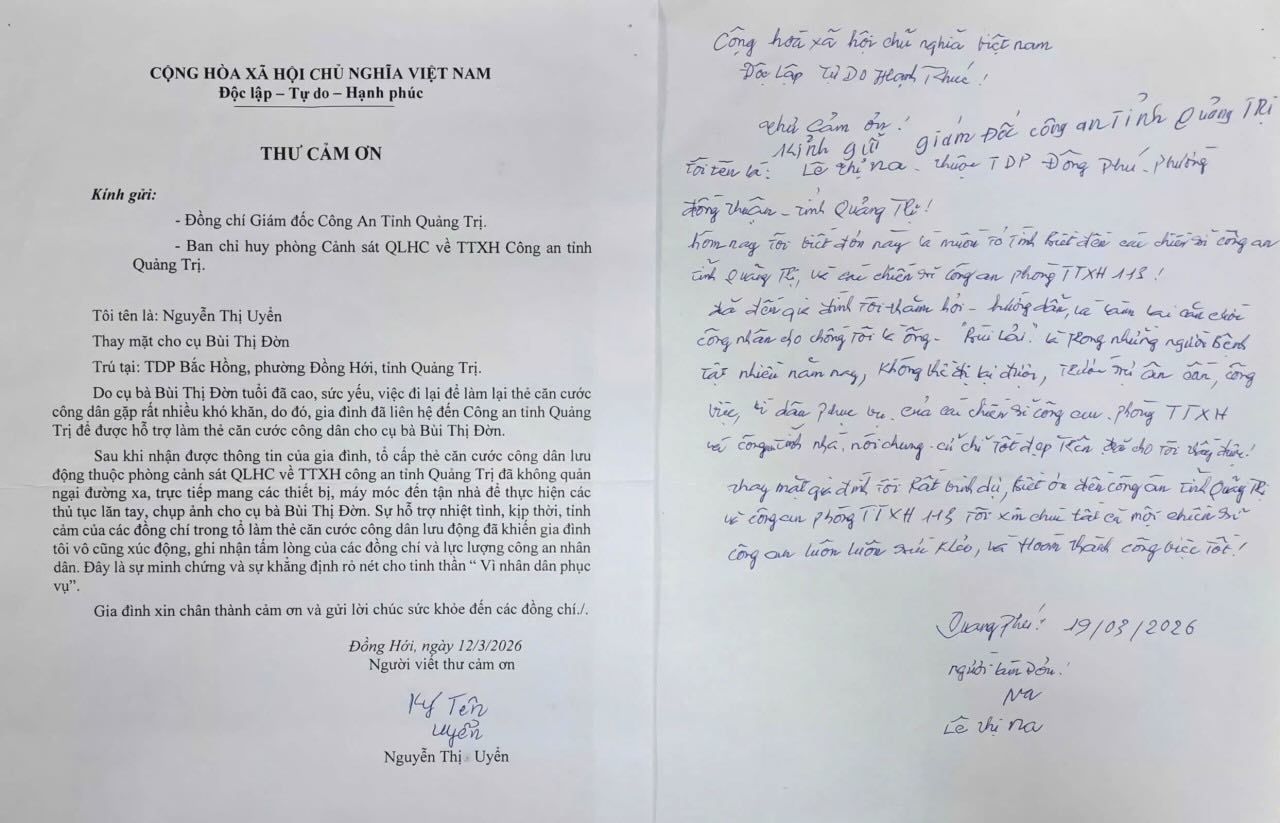 CỘNG HÒA XÃ HỘI CHỦ NGHĨA VIỆT NAM
Độc lập – Tự do – Hạnh phúc
THƯ CẢM ƠN
Kính gửi:
- Đồng chí Giám đốc Công An Tỉnh Quảng Trị.
- Ban chỉ huy phòng Cảnh sát QLHC về TTXH Công an tỉnh
Quảng Trị.
Tôi tên là: Nguyễn Thị Uyển
Thay mặt cho cụ Bùi Thị Đờn
Trú tại: TDP Bắc Hồng, phường Đồng Hới, tỉnh Quảng Trị.
Do cụ bà Bùi Thị Đờn tuổi đã cao, sức yếu, việc đi lại để làm lại thẻ căn cước
công dân gặp rất nhiều khó khăn, do đó, gia đình đã liên hệ đến Công an tỉnh Quảng
Trị để được hỗ trợ làm thẻ căn cước công dân cho cụ bà Bùi Thị Đờn.
Sau khi nhận được thông tin của gia đình, tổ cấp thẻ căn cước công dân lưu
động thuộc phòng cảnh sát QLHC về TTXH công an tỉnh Quảng Trị đã không quản
ngại đường xa, trực tiếp mang các thiết bị, máy móc đến tận nhà để thực hiện các
thủ tục lăn tay, chụp ảnh cho cụ bà Bùi Thị Đờn. Sự hỗ trợ nhiệt tình, kịp thời, tình
cảm của các đồng chí trong tổ làm thẻ căn cước công dân lưu động đã khiến gia đình
tôi vô cũng xúc động, ghi nhận tấm lòng của các đồng chí và lực lượng công an nhân
dân. Đây là sự minh chứng và sự khẳng định rỏ nét cho tinh thần “ Vì nhân dân phục
vụ”.
Gia đình xin chân thành cảm ơn và gửi lời chúc sức khỏe đến các đồng chí./.
Đồng Hới, ngày 12/3/2026
Người viết thư cảm ơn
Ký Tên
Uyển
Nguyễn Thị Uyển
Cộng hoà xã hội chủ nghĩa việt nam
Độc Lập Tự Do Hạnh Phúc!
Thư Cảm ơn!
Kính gửi giám Đốc công an Tỉnh Quảng Trị
Tôi tên là: Lê Thị Na - thuộc TDP Đồng Phú - phường
đồng thuận - tỉnh Quảng Trị!
hôm nay tôi viết đơn này là muốn tỏ tình biết đến các chiến sĩ công an
tỉnh Quảng Trị, và các chiến sĩ công an phòng TTXH 113!
đã đến gia đình tôi thăm hỏi - hướng dẫn, và làm lại căn cước
công nhân cho chồng tôi là ông - "Bùi Lải" là trong những người Bệnh
tật nhiều năm nay, không thể đi lại được, ân cần, công
việc, vì dân phục vụ của các chiến sĩ công an phòng TTXH
và công an tỉnh nhà, nói chung - cử chỉ tốt đẹp trên đã cho tôi thấy được!
thay mặt gia đình tôi Rất biết ơn đến công an tỉnh Quảng Trị
và công an phòng TTXH 113 Tôi xin chúc tất cả mọi chiến sĩ
công an luôn luôn sức khỏe, và Hoàn thành công việc Tốt!
Quang Phú! 19/03/2026
người làm Đơn!
Na
Lê Thị Na